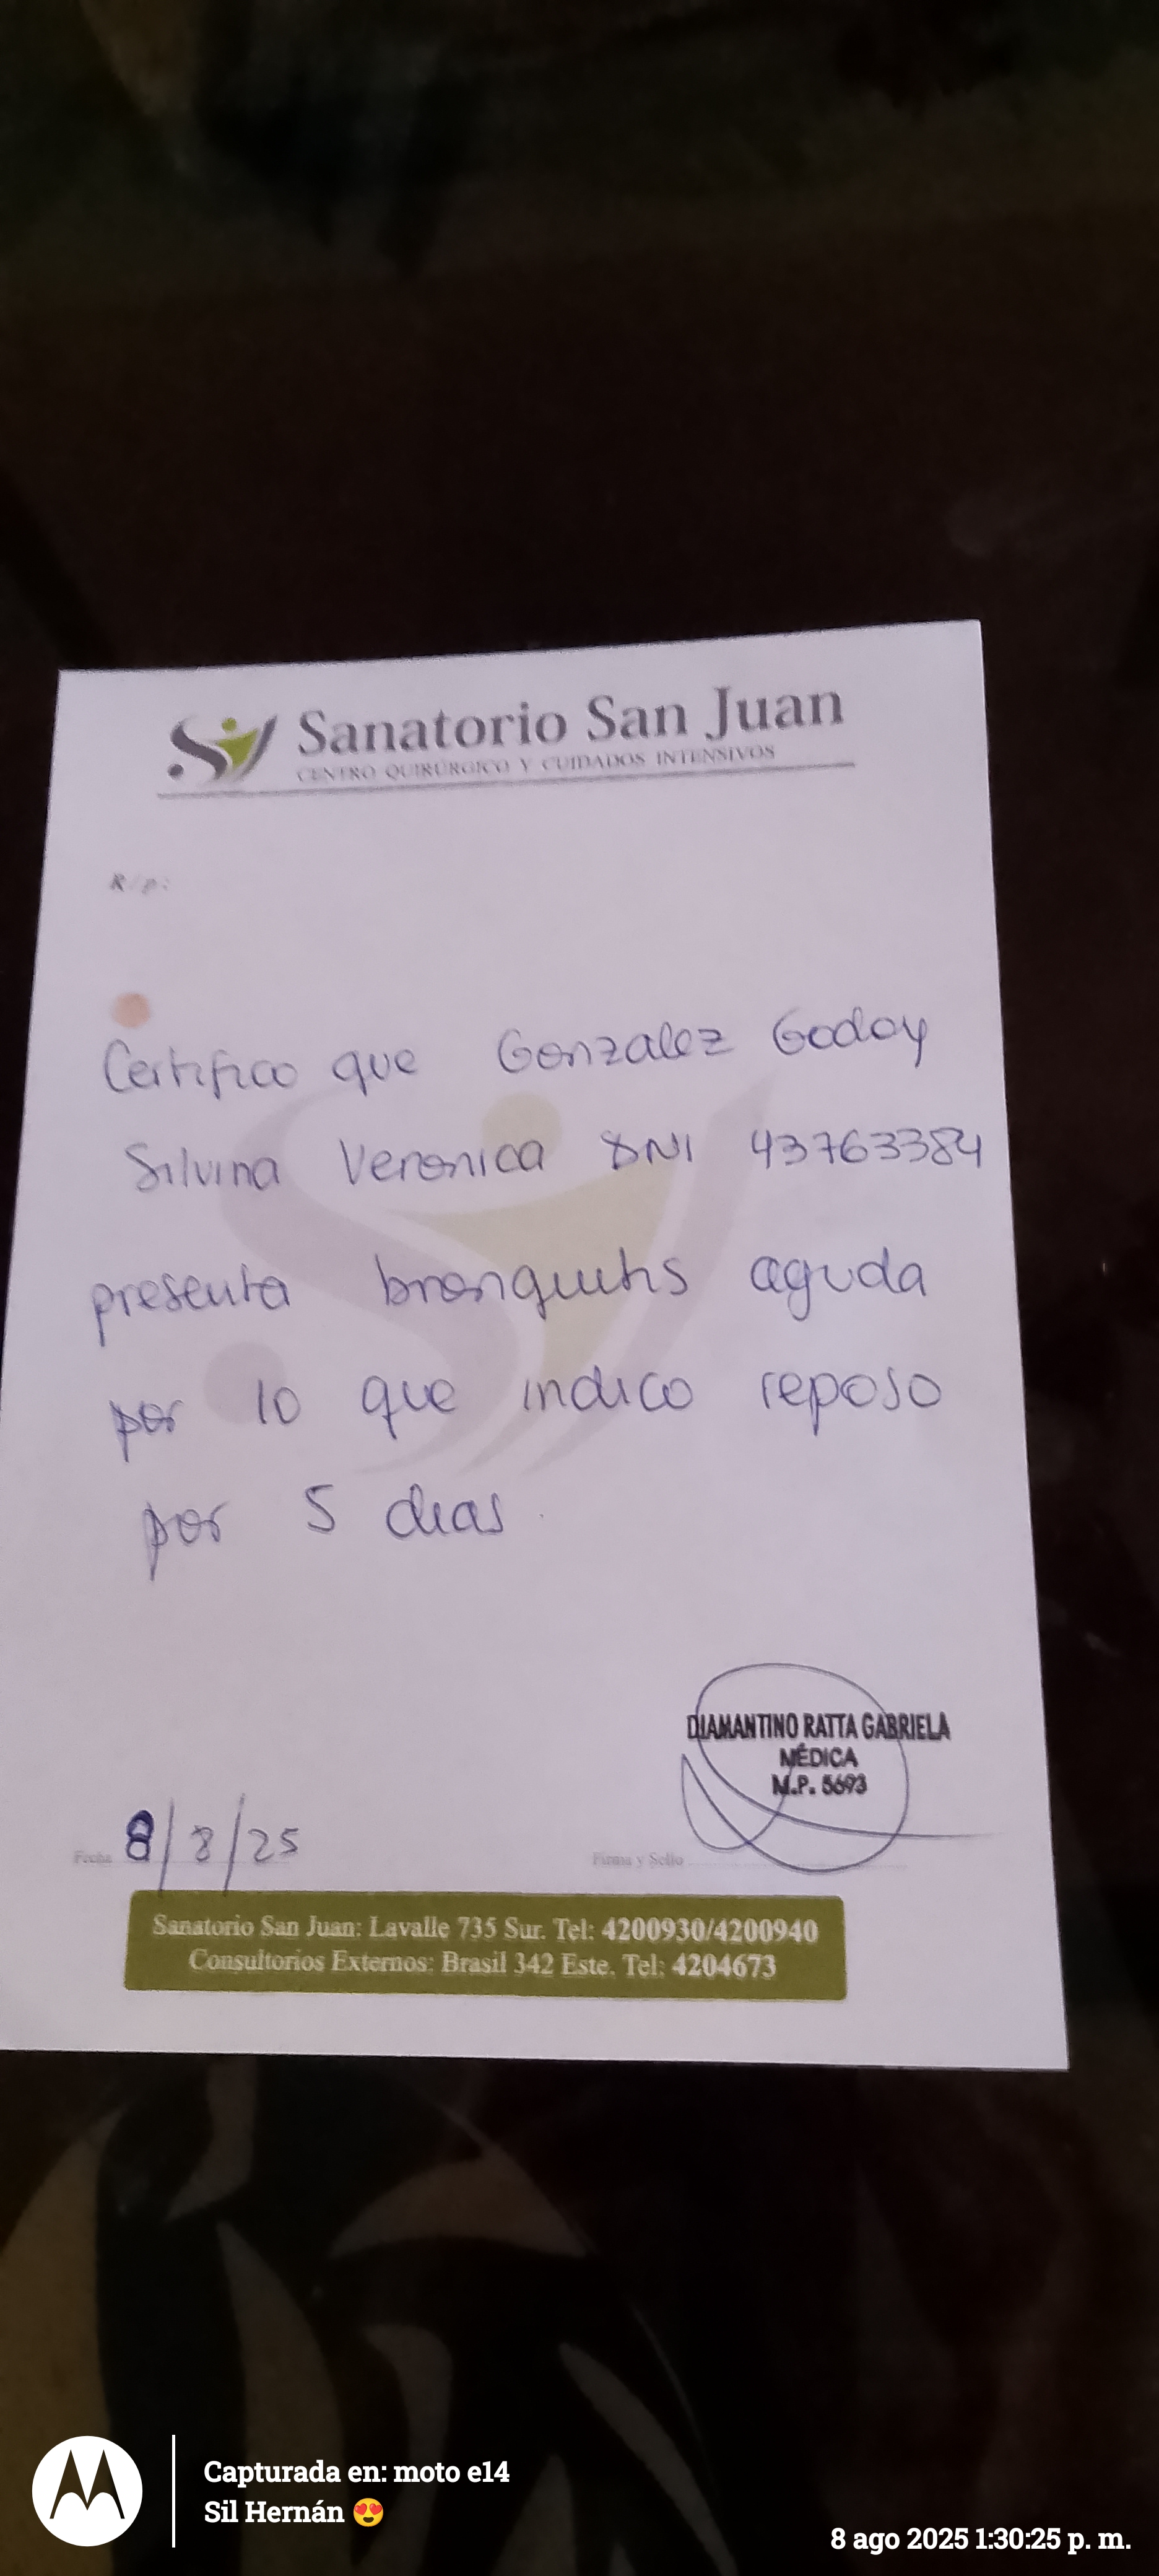 Sanatorio San Juan
CENTRO QUIRÚRGICO Y CUIDADOS INTENSIVOS
R/p:
Certifico que Gonzalez Godoy
Silvina Veronica DNI 43763384
presenta bronquitis aguda
por lo que indico reposo
por 5 dias.
DIAMANTINO RATTA GABRIELA
MÉDICA
M.P. 5693
Fecha 8/8/25
Firma y Sello
Sanatorio San Juan: Lavalle 735 Sur. Tel: 4200930/4200940
Consultorios Externos: Brasil 342 Este. Tel: 4204673
Capturada en: moto e14
Sil Hernán 😍
8 ago 2025 1:30:25 p. m.